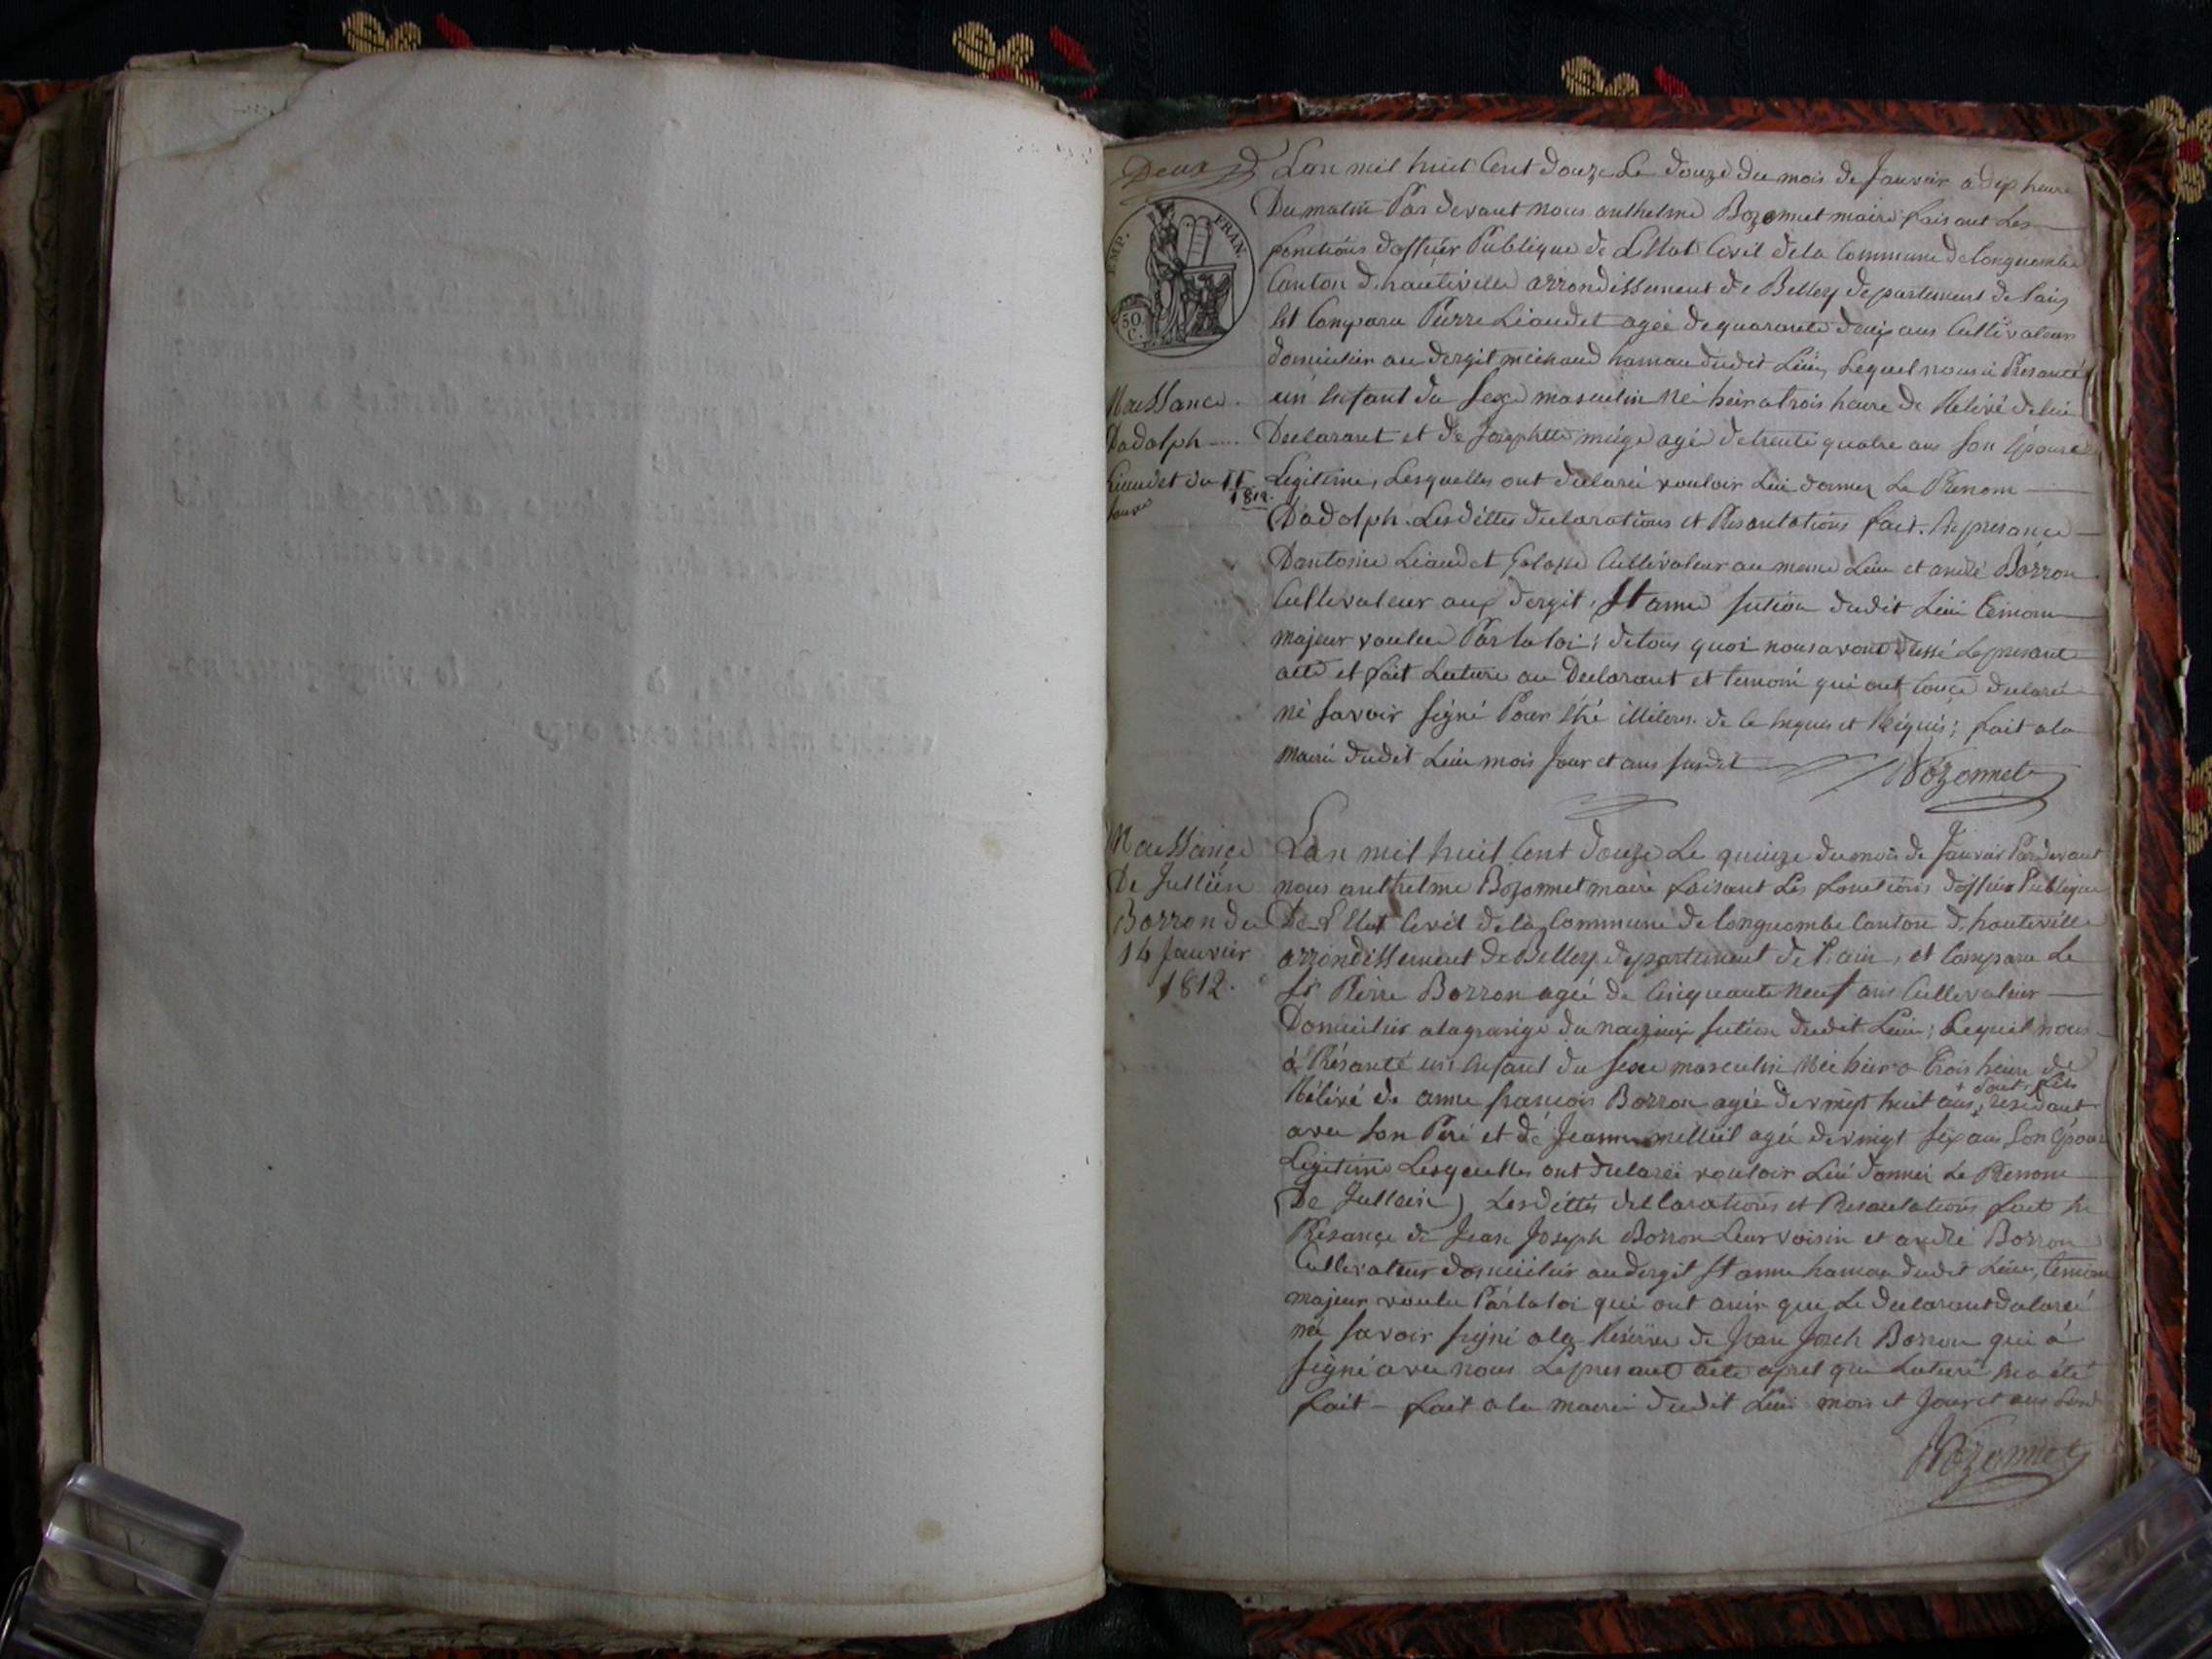 Deux
EMP. FRAN.
50
C.
Lan mil huit Cent douze Le douze du mois de Janvier a dix heure
Du matin Par devant nous anthelme Bozonnet maire faisant Les
fonctions dofficier Publique de L'Etat Civil de la Commune de longecombe
Canton d'hauteville arrondissement de Belley departement de Lain
Et Comparu Pierre Liaudet agée de quarante deux ans Cultivateur
domicilier au dergit michaud hamau dudit Lieu, Lequel nous a Presanté
un Enfant du Sexe masculin Né hier a trois heure de Relivé de lui
Declarant et de Josephte miége agée de trente quatre ans son Epouse
Legitime, Lesquelles ont declaré vouloir Lui donner Le Prenom
D'adolph. Lesdittes declarations et Presantations fait. En presance
Dantoine Liaudet Cultivateur au meme Lieu et andré Borron
Cultivateur aux dergit, St anne sution dudit Lieu temoin
majeur voulue Par la loi; de tous quoi nous avons dressé Le presant
acte et fait Lecture au Declarant et temoin qui ont declaré
né savoir signé Pour être de ce Enquis et Réquis; fait a la
mairie dudit Lieu mois Jour et ans susdit
Bozonnet
Naissance
Dadolph
Liaudet du 11
1812.
Janvier
Naissance
De Jullien
Borron du
14 Janvier
1812.
Lan mil huit Cent douze Le quinze du mois de Janvier Par devant
nous anthelme Bozonnet maire faisant Les fonctions d'officier Publique
De L'Etat Civil de la Commune de longecombe Canton d'hauteville
arrondissement de Belley departement de l'ain, et Comparu Le
Sr Pierre Borron agée de Cinquante neuf ans Cultivateur
Domicilier a la grange du sution dudit Lieu; Lequel nous
à Présanté un Enfant du sexe masculin Né hier a trois heure de
Rélivé de anne francois Borron agée de vingt huit ans, résidant
avec son Peré et de Jeanne agée de vingt six ans Son Epouse
Legitime Lesquelles ont declaré vouloir Lui donner Le Prenom
De Jullien) Lesdittes déclarations et Presantations fait En
Présance de Jean Joseph Borron Leur voisin et andré Borron
Cultivateur domicilier au dergit St anne hamau dudit Lieu, temoin
majeur voulu Par la loi qui ont ainsi que Le declarant declaré
né savoir signé a la Réserve de Jean Joseh Borron qui à
signé avec nous Le presant acte apret que Lecture En a été
fait - fait a la mairie dudit Lieu mois et Jour et ans
Bozonnet